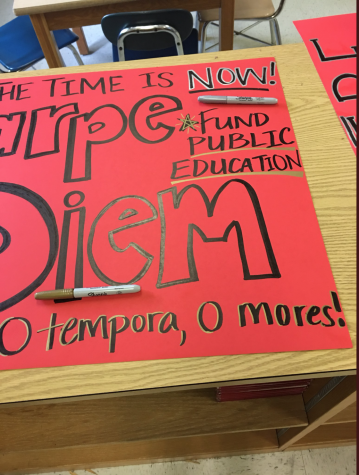 HE TIME IS NOW!
arpe
FUND
PUBLIC
EDUCATION
Diem
O tempora, O mores!